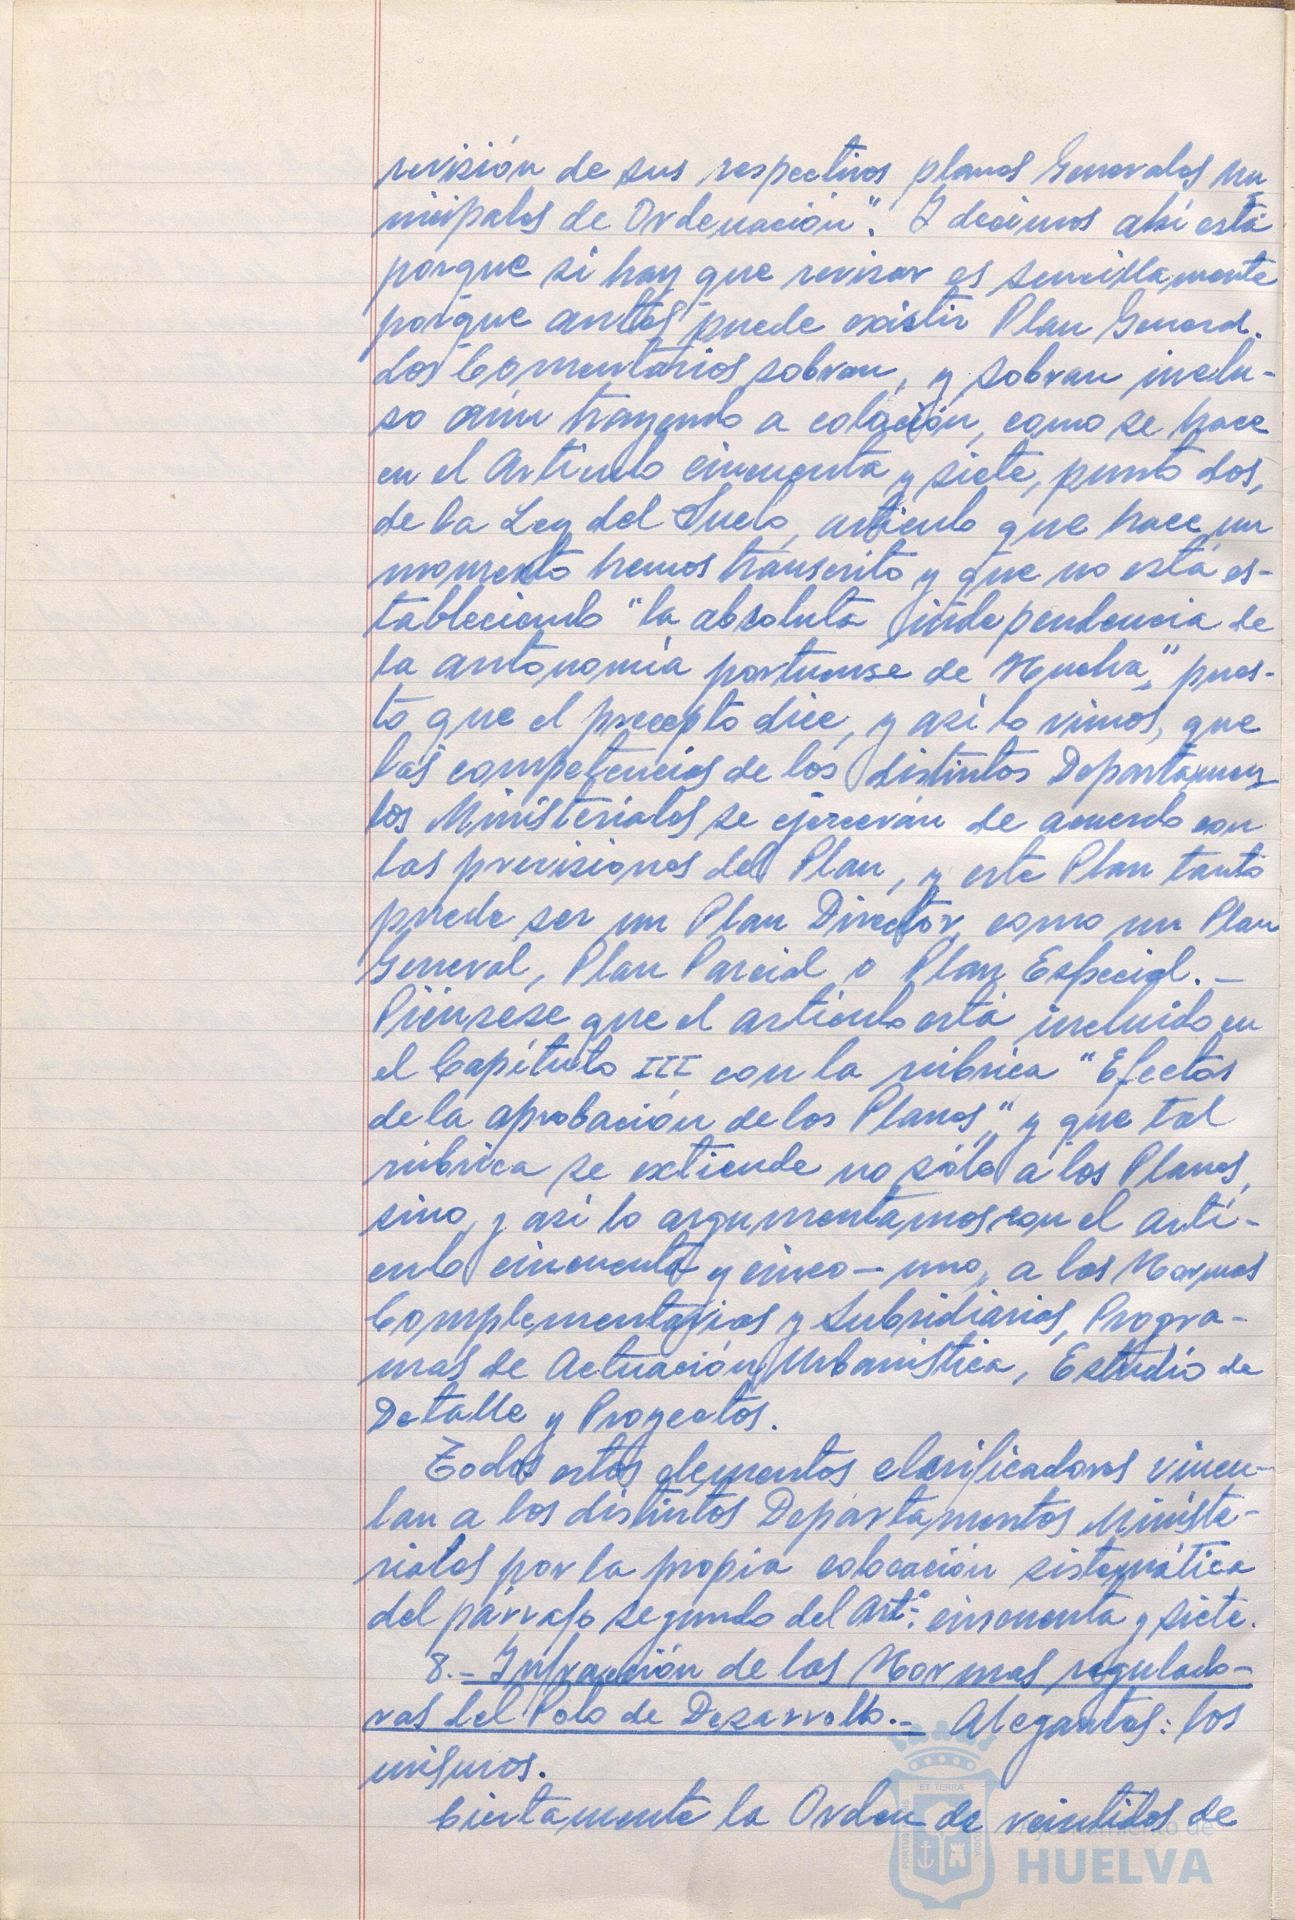 revisión de sus respectivos planes Generales Mu
nicipales de Ordenación". Y decimos ahí está
porque si hay que revisar es sencillamente
porque antes puede existir Plan General.
Los Comentarios sobran, y sobran inclu-
so aún trayendo a colación, como se hace
en el Artículo cincuenta y siete, punto dos,
de la Ley del Suelo, artículo que hace un
momento hemos transcrito y que no está es-
tableciendo "la absoluta independencia de
la autonomía portuense de Huelva", pues-
to que el precepto dice, y así lo vimos, que
las competencias de los distintos Departamen
tos Ministeriales se ejercerán de acuerdo con
las previsiones del Plan, y este Plan tanto
puede ser un Plan Director, como un Plan
General, Plan Parcial o Plan Especial.-
Piénsese que el artículo está incluido en
el Capítulo III con la rúbrica "Efectos
de la aprobación de los Planes", y que tal
rúbrica se extiende no sólo a los Planes,
sino, y así lo argumentamos con el artí-
culo cincuenta y cinco-uno, a las Normas
Complementarias y Subsidiarias, Progra-
mas de Actuación Urbanística, Estudio de
Detalle y Proyectos.
Todos estos elementos clarificadores vincu-
lan a los distintos Departamentos Ministe-
riales por la propia colocación sistemática
del párrafo segundo del Artº. cincuenta y siete.
8.- Infracción de las Normas regulado-
ras del Polo de Desarrollo.- Alegantes: los
mismos.
Ciertamente la Orden de veintidos de
ET TERRAE
PORTUS MARIS
CUSTODIA
Ayuntamiento de
HUELVA